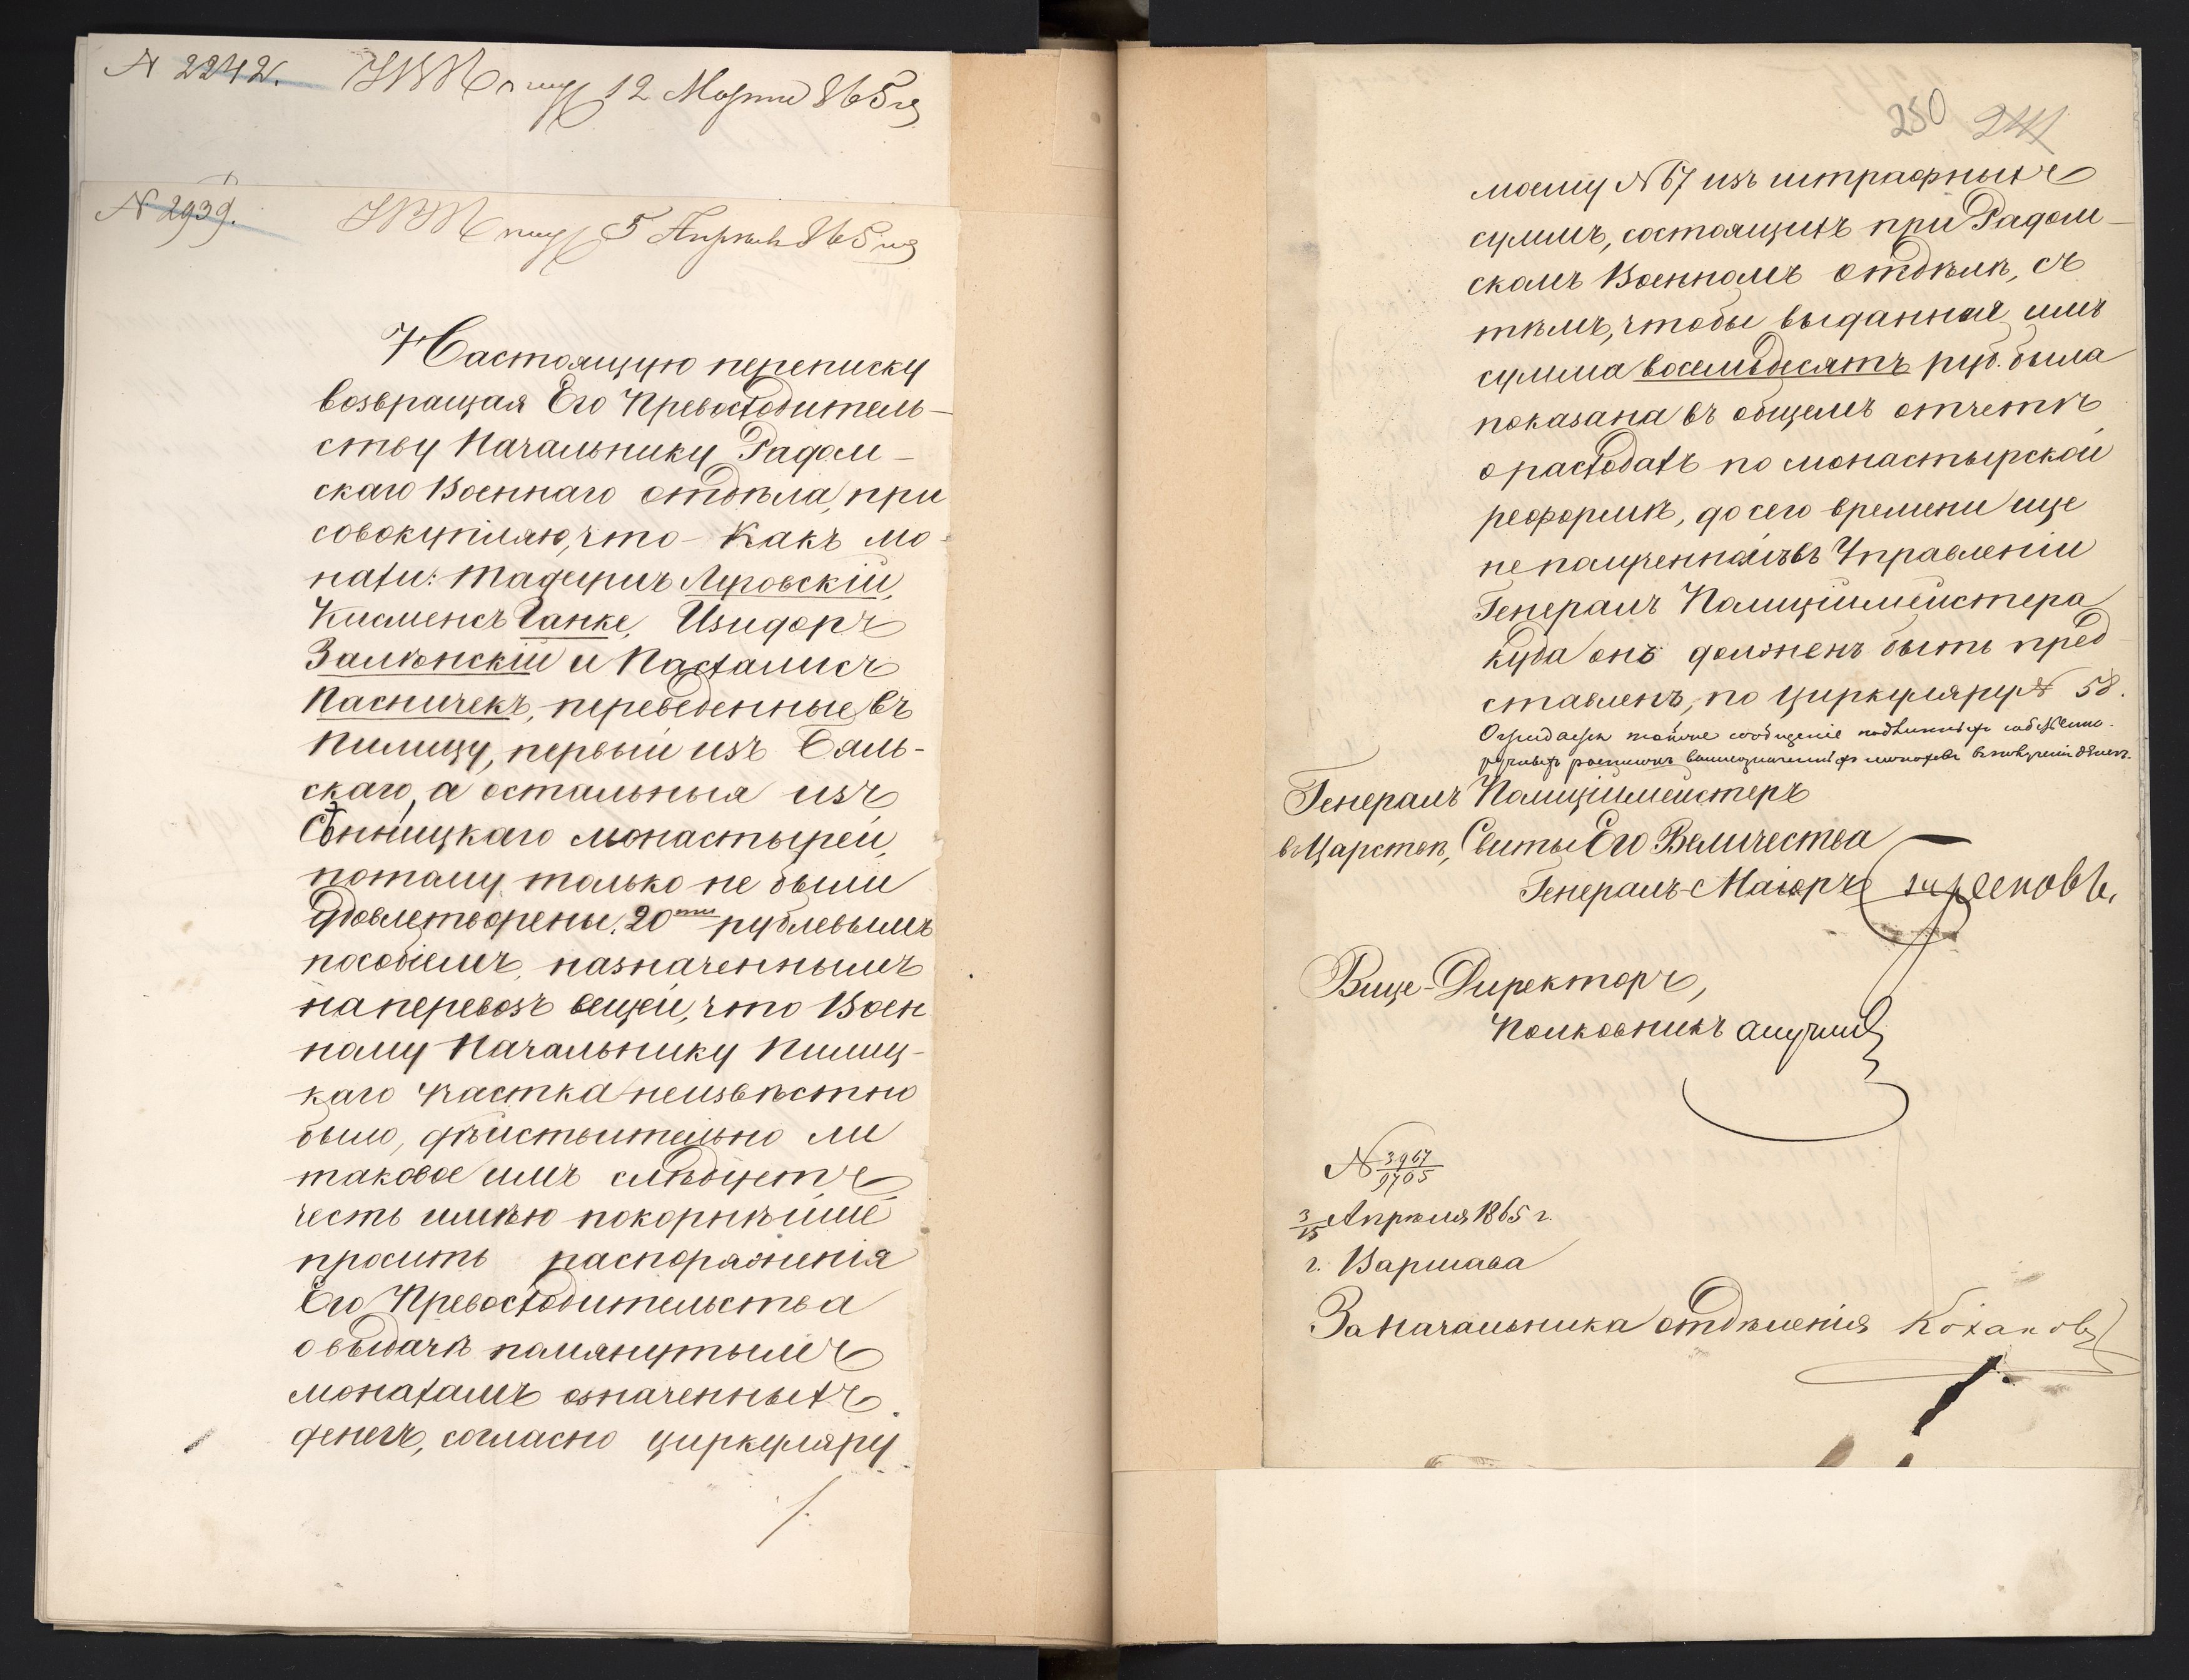 № 2242. 12 Марта 865 г.
№ 2939. 5 Апрѣля 865 г.
Настоящую переписку
возвращая Его Превосходитель-
ству Начальнику Радом-
скаго Военнаго отдѣла, при
совокупляю, что - Какъ мо-
нахи: Тадеушъ Луровскій,
Климентъ Ганке, Изидоръ
Залѣнскій и Пасхалисъ
Пасничекъ, переведенные въ
Пилицу, первый изъ
скаго, а остальныя изъ
Сѣнницкаго монастырей,
потому только не были
удовлетворены 20ти рублевымъ
пособіемъ, назначеннымъ
на перевозъ вещей, что Воен
ному Начальнику Пилиц-
каго участка неизвѣстно
было, дѣйствительно ли
таковое имъ слѣдуетъ,
честь имѣю покорнѣйше
просить распоряженія
Его Превосходительства
о выдачѣ помянутымъ
монахамъ означенныхъ
денегъ, согласно циркуляру
250 241
моему № 67 изъ штрафныхъ
суммъ, состоящихъ при Радом-
скомъ Военномъ отдѣлѣ, съ
тѣмъ, чтобы выданная имъ
сумма восемьдесятъ руб. была
показана въ общемъ отчетѣ
о расходахъ по монастырской
реформѣ, до сего времени еще
не полученномъ въ Управленіи
Генералъ Полиціймейстера
куда онъ долженъ быть пред
ставленъ, по циркуляру № 58.
сообщеніе
росписокъ вышеозначенныхъ монаховъ въ полученіи денегъ.
Генералъ Полиціймейстеръ
въ Царствѣ, Свиты Его Величества
Генералъ-Маіоръ
Вице-Директоръ,
Полковникъ
№ 3967/9705
3/15 Апрѣля 1865 г.
г. Варшава
За Начальника отдѣленія Кохановъ